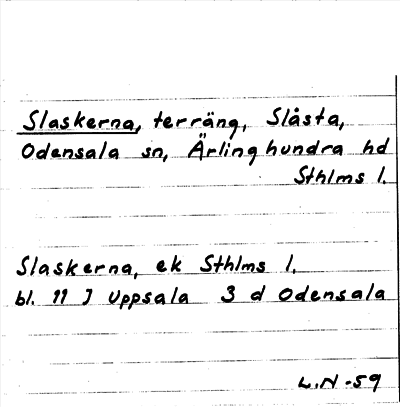 Slaskerna, terräng, Slåsta,
Odensala sn, Ärlinghundra hd
Sthlms l.
Slaskerna, ek Sthlms l.
bl. 11 J Uppsala 3 d Odensala
L.N -59